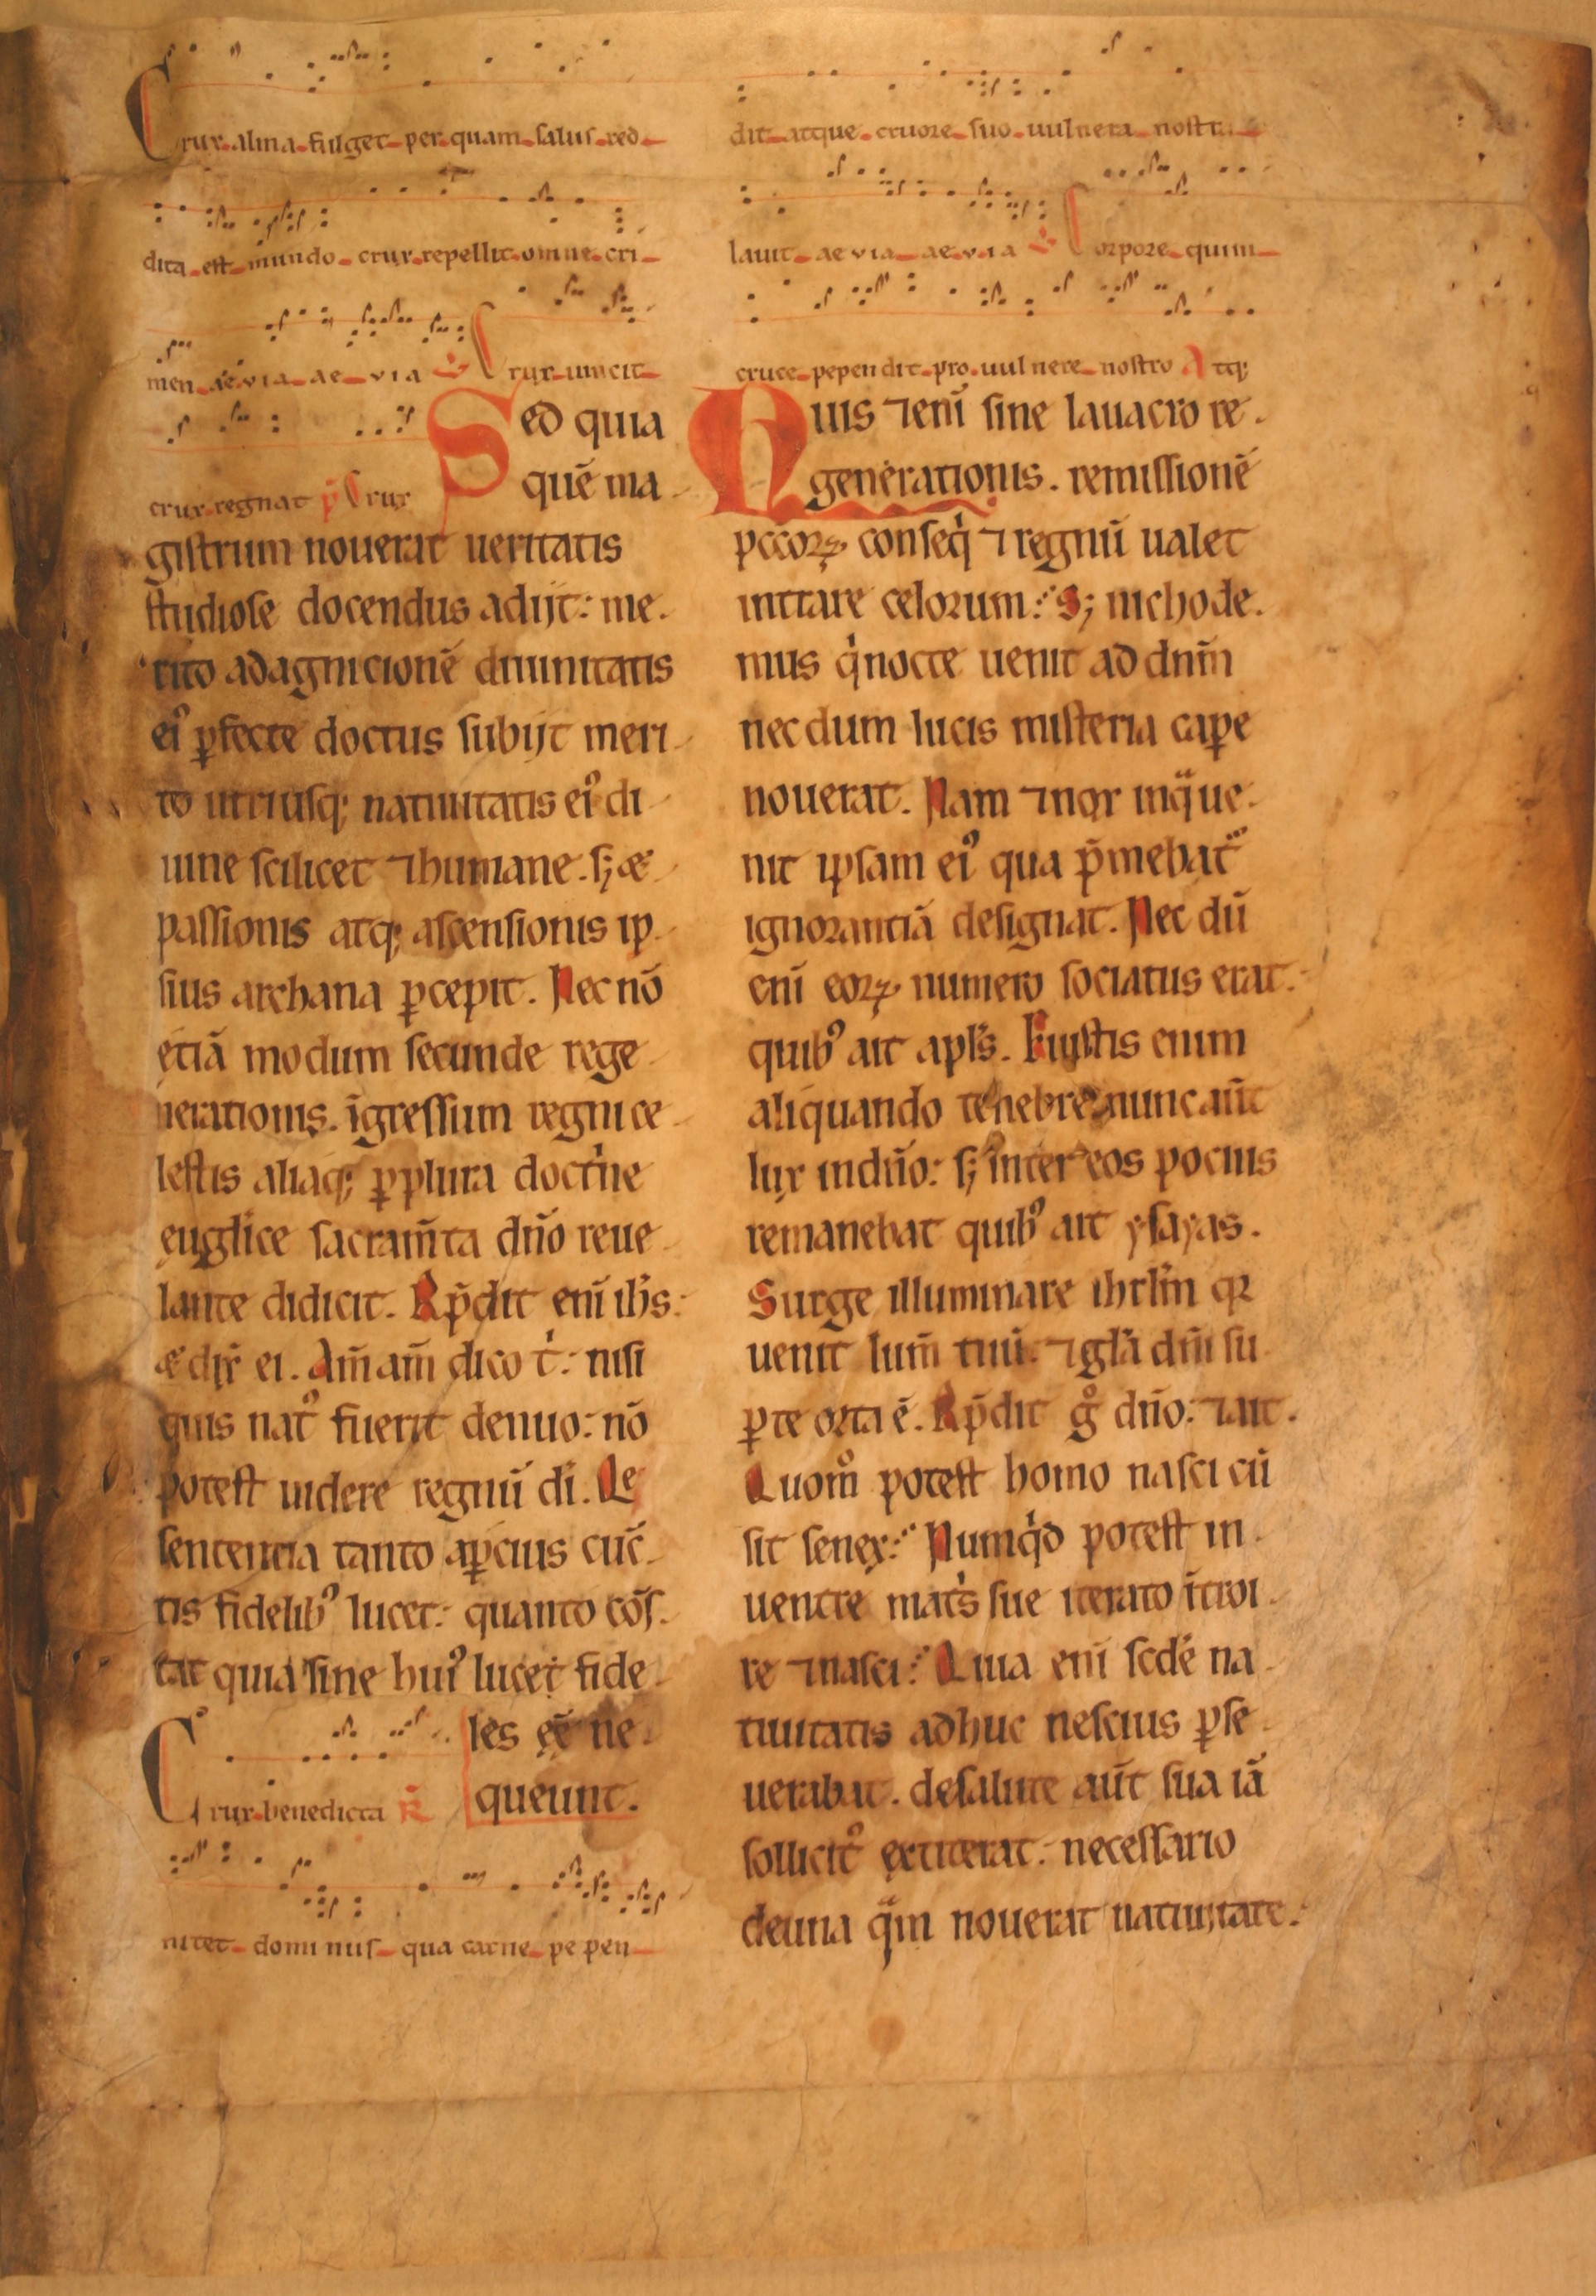 Crux. alma. fulget. per. quam. salus. red
dita. est. mundo. crux. repellit. omne. cri
men. ae via. ae via ℣ Crux. uincit
crux. regnat p̄ Crux
Sed quia
quē ma
gistrum nouerat ueritatis
studiose docendus adijt: me
rito ad agnicionē diuinitatis
eiꝰ ꝑfecte doctus subijt meri
to utriusq; natiuitatis eiꝰ di
uine scilicet ⁊ humane. s; æ
passionis atq; ascensionis ip
sius archana ꝑcepit. Nec nō
etiā modum secunde rege
nerationis. īgressum regni ce
lestis aliaq; ꝑplura doctⁱne
euglice sacram̄ta dn̄o reue
lante didicit. Rp̄dit eni̅ ih̅s:
æ dix̄ ei. Am̄ am̄ dico t̄: nisi
quis natꝰ fuerit denuo: nō
potest uidere regnū dī. Qe
sentencia tanto aꝑcius cūc
tis fidelibꝰ lucet: quanto cōs
tat quia sine huiꝰ lucet fide
les eē ne
queunt.
Crux. benedicta R̄
nitet. domi nus. qua carne. pe pen
dit. atque. cruore. suo. uulnera. nostra
lauit. ae via. ae via ℣ Corpore. quim
cruce. pepen dit. pro. uul nere. nostro Atq;
Quis ⁊ eni̅ sine lauacro re
generationis. remissionē
pccoꝝ conseqⁱ ⁊ regnū ualet
inttare celorum: S; nichode
mus qⁱ nocte uenit ad dn̄m
nec dum lucis misteria caꝑe
nouerat. Nam ⁊ nox in qᵃ ue
nit ipsam eiꝰ qua p̄mebat᷑
ignorantiā designat. Nec dū
eni̅ eoꝝ numero sociatus erat:
quibꝰ ait apl̄s. Fuistis enim
aliquando tenebre nunc aūt
lux in dn̄o: s; inter eos pocius
remanebat quibꝰ ait ysayas.
Surge illuminare ihrl̄m qꝛ
uenit lum̄ tuū. ⁊ gl̄a dn̄i su
ꝑ te orta ē. Rp̄dit g̊ dn̄o: ⁊ ait.
Quom̊ potest homo nasci cū
sit senex: Numqⁱd potest in
uentre matⁱs sue iterato ītroi
re ⁊ nasci: Quia eni̅ scd̄e na
tiuitatis adhuc nescius ꝑse
uerabat. de salute aūt sua iā
sollicitꝰ extiterat: necessario
de una qᵃm nouerat natiuitate.